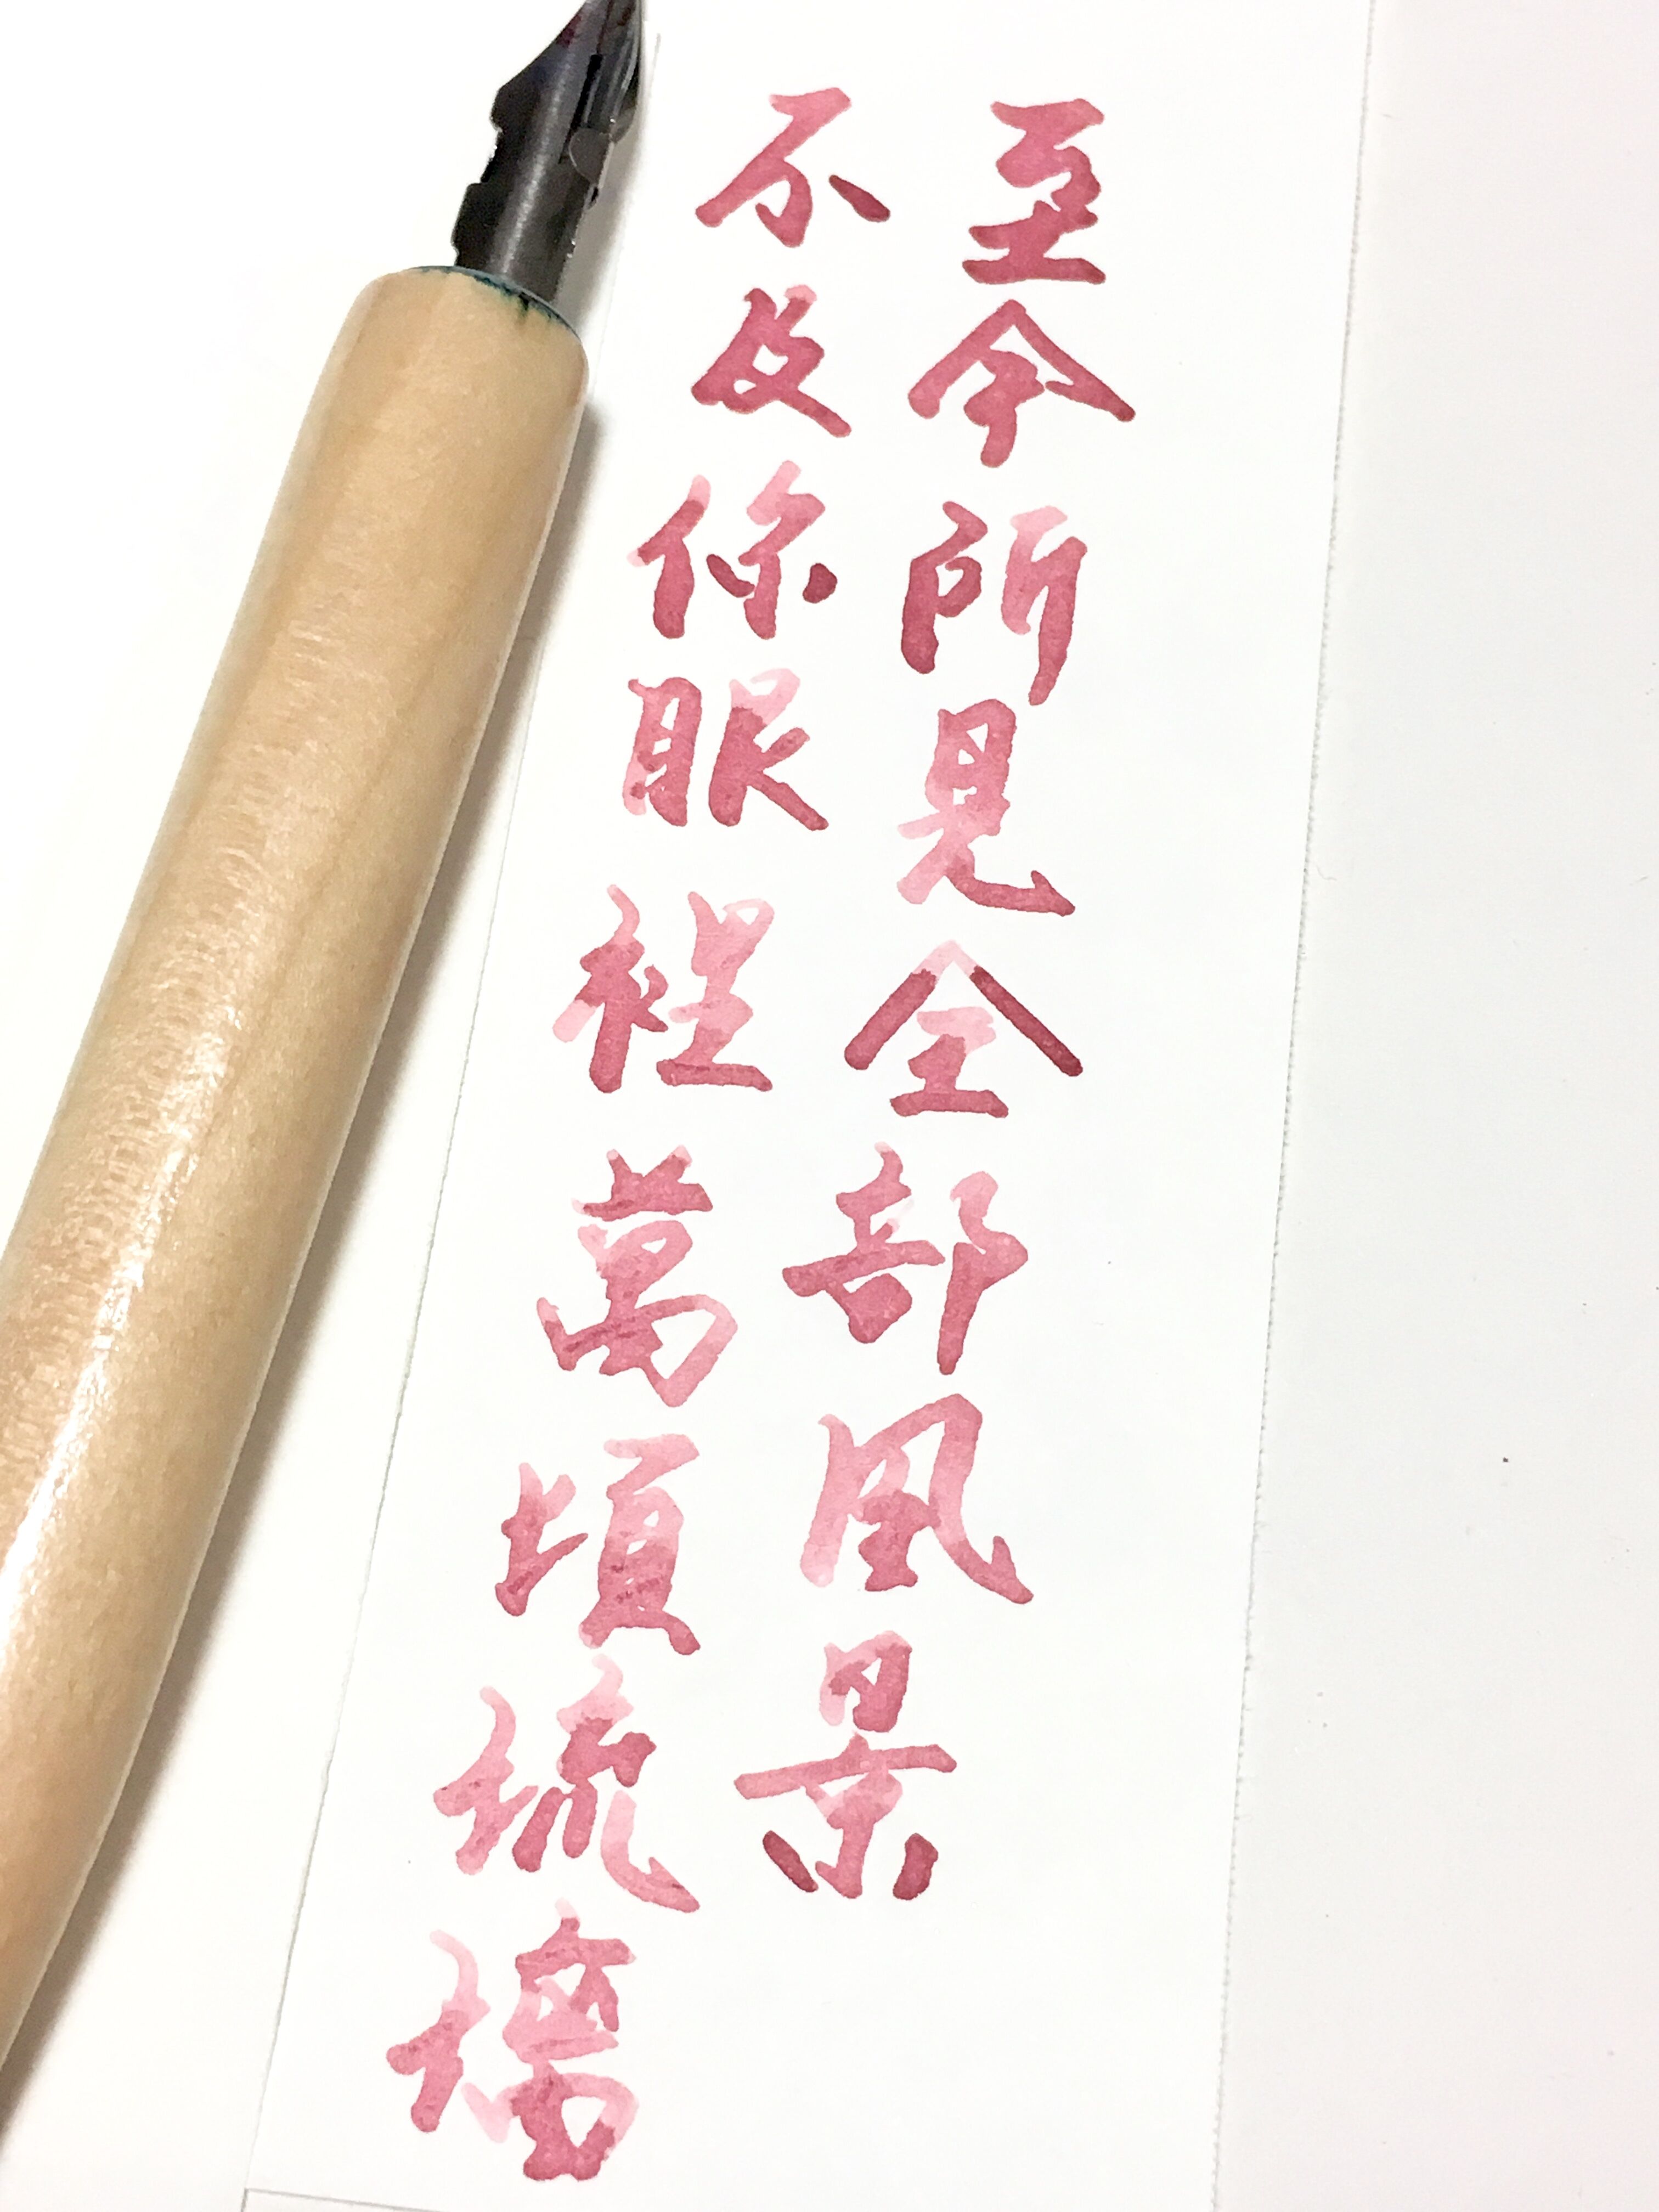 至今所見全部風景
不及你眼裡萬頃琉璃